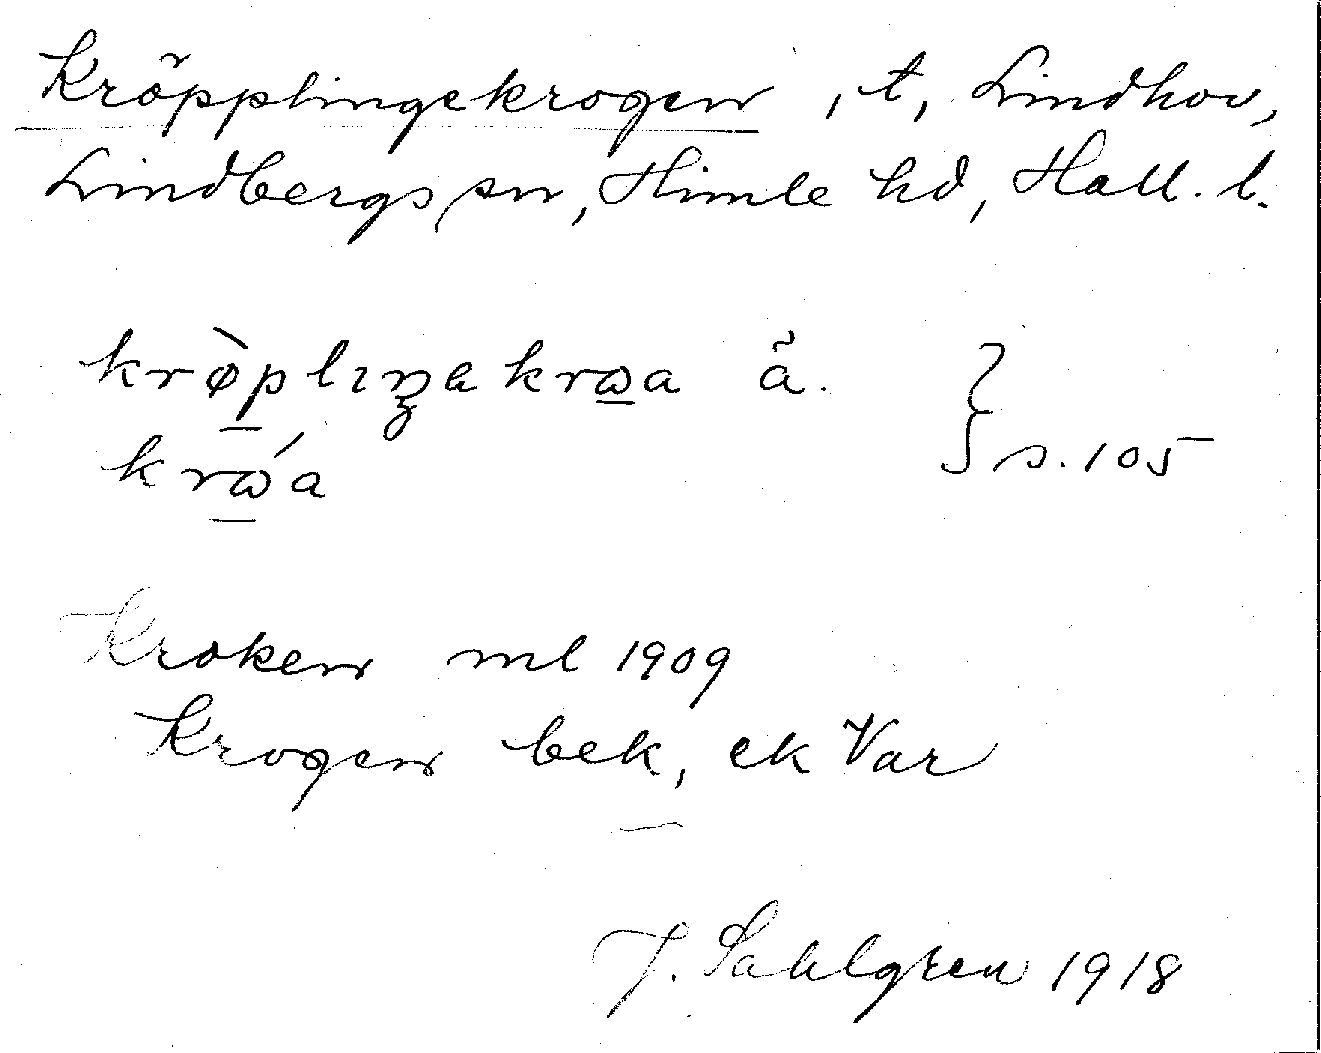 Kröpplingekrogen, t, Lindhov,
Lindbergs sn, Himle hd, Hall. l.
krø̀plıŋakrɷa ä.
krɷ́a } s. 105
Kroken ml 1909
Krogen bek, ek Var
J. Sahlgren 1918